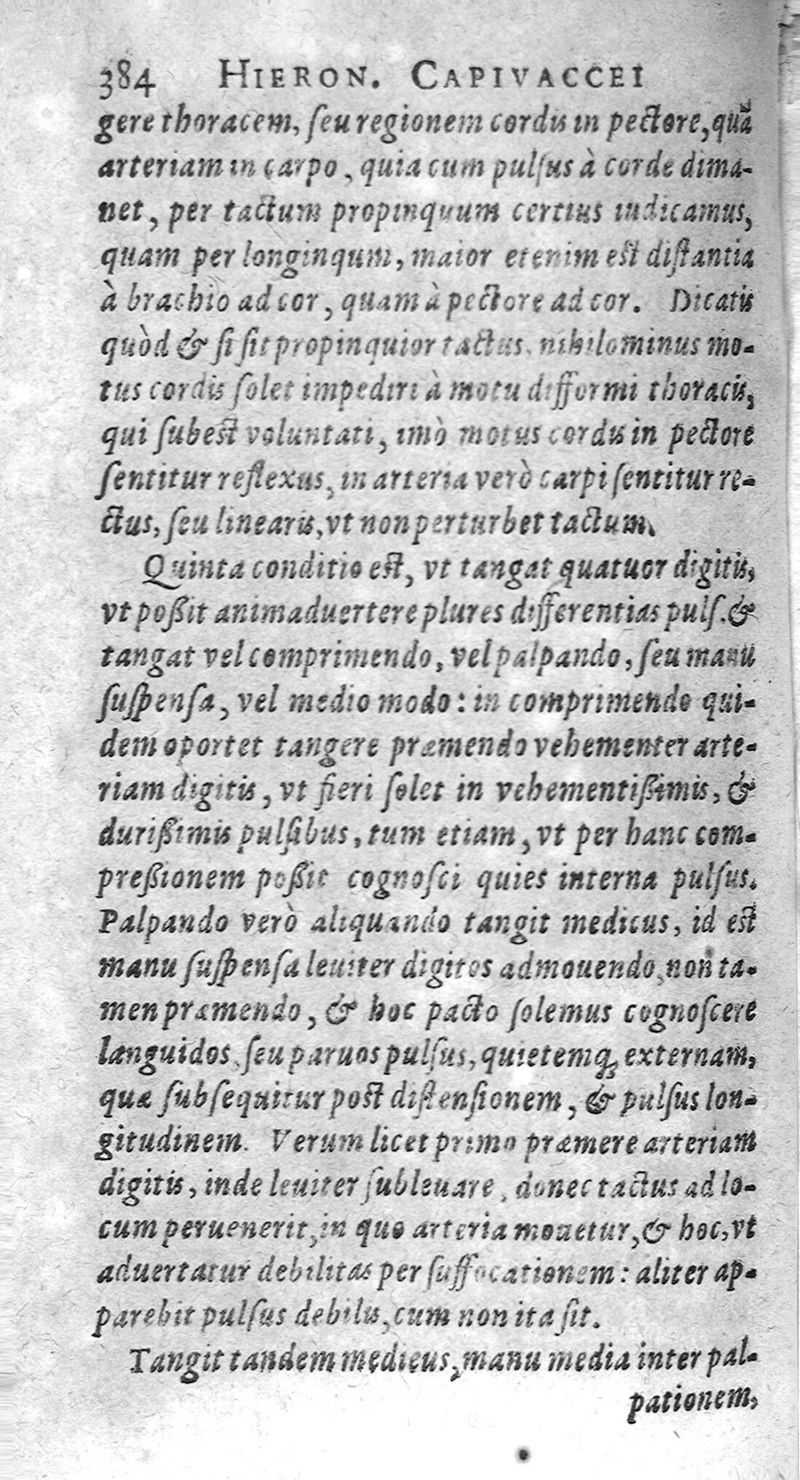 384 HIERON. CAPIVACCEI
gere thoracem, ſeu regionem cordis in pectore, quã
arteriam in carpo, quia cum pulſus à corde dima-
net, per tactum propinquum certius iudicamus,
quam per longinqum, maior etenim est diſtantia
à brachio ad cor, quam à pectore ad cor. Dicatis
quòd & ſi ſit propinquior tactus, nihilominus mo-
tus cordis ſolet impediri à motu difformi thoracis,
qui ſubest voluntati, imò motus cordis in pectore
ſentitur reflexus, in arteria verò carpi ſentitur re-
ctus, ſeu linearis, vt non perturbet tactum.
Quinta conditio est, vt tangat quatuor digitis,
vt poßit animaduertere plures differentias pulſ. &
tangat vel comprimendo, vel palpando, ſeu manu
ſuſpenſa, vel medio modo: in comprimendo qui-
dem oportet tangere præmendo vehementer arte-
riam digitis, vt fieri ſolet in vehementißimis, &
durißimis pulſibus, tum etiam, vt per hanc com-
preßionem poßit cognoſci quies interna pulſus.
Palpando verò aliquando tangit medicus, id est
manu ſuſpenſa leuiter digitos admouendo, non ta-
men præmendo, & hoc pacto ſolemus cognoſcere
languidos, ſeu paruos pulſus, quietemq; externam,
quæ ſubſequitur post diſtenſionem, & pulſus lon-
gitudinem. Verum licet primo præmere arteriam
digitis, inde leuiter ſubleuare, donec tactus ad lo-
cum peruenerit, in quo arteria mouetur, & hoc, vt
aduertatur debilitas per ſuffocationem: aliter ap-
parebit pulſus debilis, cum non ita ſit.
Tangit tandem medicus, manu media inter pal-
pationem,